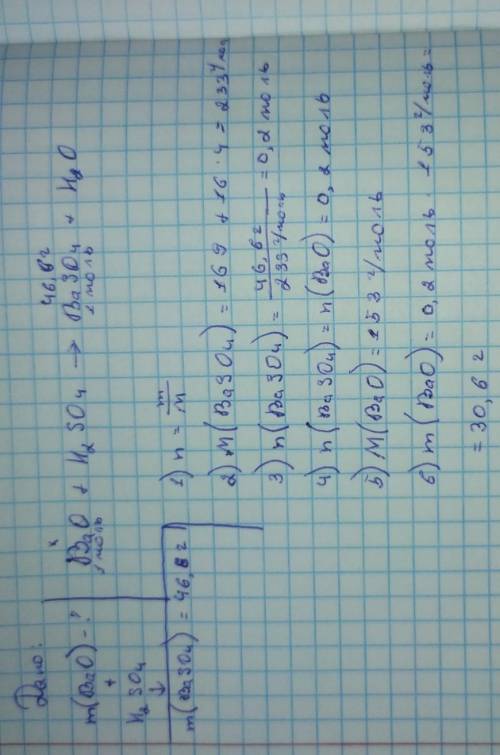 Дано:
m(BaO) - ?
+
H₂SO₄
↓
m(BaSO₄) = 46,6 г
x 46,6 г
BaO + H₂SO₄ → BaSO₄ + H₂O
1 моль 1 моль
1) n = m/M
2) M(BaSO₄) = 169 + 16 · 4 = 233 г/моль
3) n(BaSO₄) = 46,6 г / 233 г/моль = 0,2 моль
4) n(BaSO₄) = n(BaO) = 0,2 моль
5) M(BaO) = 153 г/моль
6) m(BaO) = 0,2 моль · 153 г/моль =
= 30,6 г